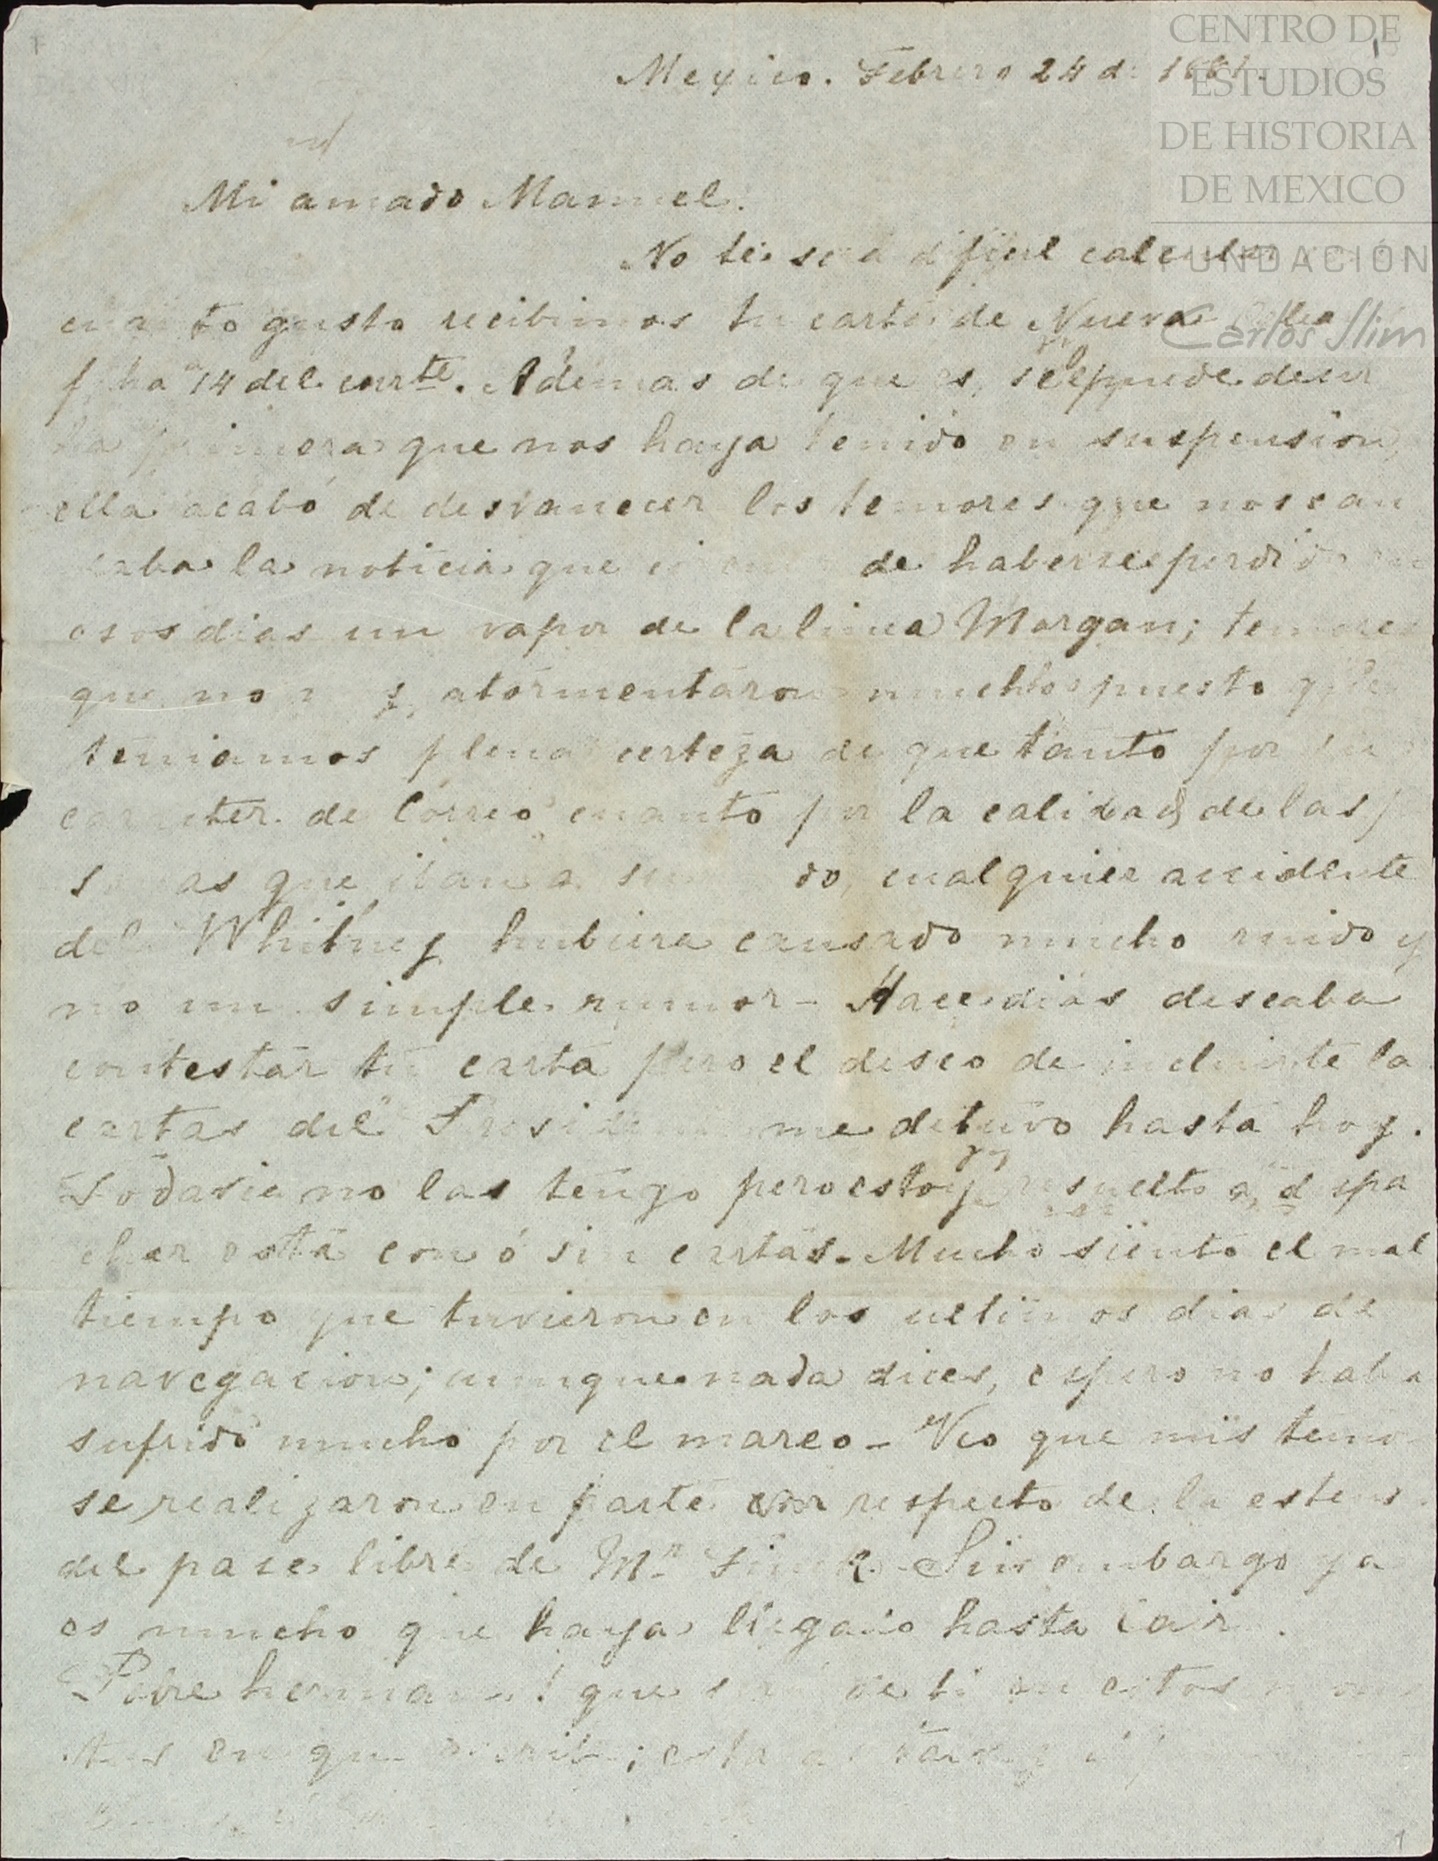 CENTRO DE
ESTUDIOS
DE HISTORIA
DE MEXICO
FUNDACIÓN
Carlos Slim
Mexico. Febrero 24 de 1881.
Mi amado Manuel.
No te será dificil calcular con
cuanto gusto recibimos tu carta de Nueva
fha 14 del corte. Ademas de que es, se puede decir
la primera que nos haya tenido en suspension,
ella acabó de desvanecer los temores que nos cau
saba la noticia que de haberse perdido en
esos dias un vapor de la linea Morgan; temores
que no nos atormentaron mucho puesto que
teniamos plena certeza de que tanto por su
caracter de correo cuanto por la calidad de las per
sonas que iban a su do, cualquier accidente
del Whitney hubiera causado mucho ruido y
no un simple rumor - Hace dias deseaba
contestar tu carta pero el deseo de incluirte la
cartas del Presidente me detuvo hasta hoy.
Todavia no las tengo pero estoy resuelto a despa
char esta con ó sin cartas. Mucho siento el mal
tiempo que tuvieron en los ultimos dias de
navegacion; aunque nada dices, espero no haba
sufrido mucho por el mareo - Veo que mis temo
se realizaron en parte con respecto de la estens
del pase libre de Mr Sin embargo ya
es mucho que haya llegado hasta
Pobre hermano! que será de ti en estos mom
tos en que escribo;